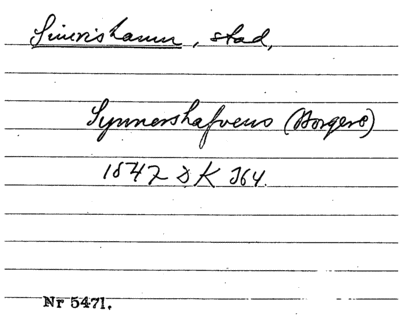 Simrishamn, stad,
Synnershafvens (Borgere)
1547 DK 364.
Nr 5471.